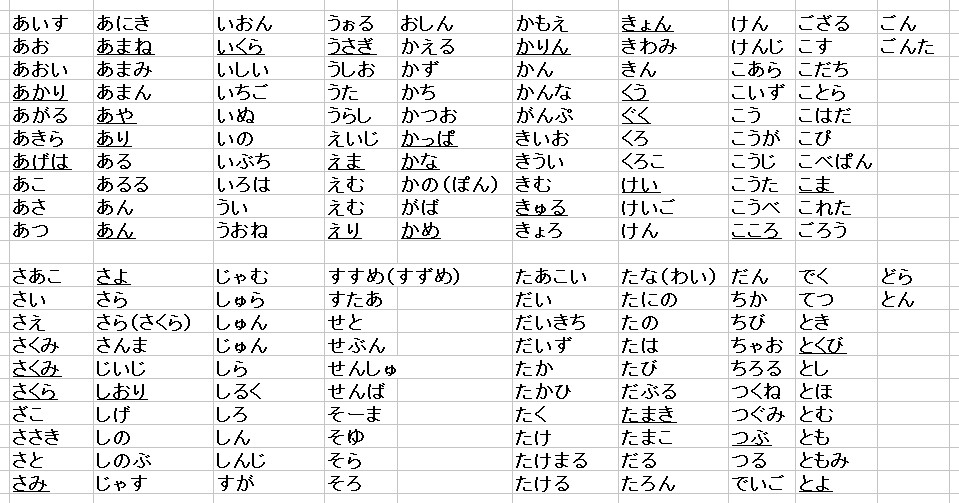 あいす あにき いおん うぉる おしん かもえ きょん けん ござる ごん
あお あまね いくら うさぎ かえる かりん きわみ けんじ こす ごんた
あおい あまみ いしい うしお かず かん きん こあら こだち
あかり あまん いちご うた かち かんな くう こいず ことら
あがる あや いぬ うらし かつお がんぷ ぐく こう こはだ
あきら あり いの えいじ かっぱ きいお くろ こうが こび
あげは ある いぶち えま かな きうい くろこ こうじ こべぱん
あこ あるる いろは えむ かの(ぽん) きむ けい こうた こま
あさ あん うい えむ がば きゅる けいご こうべ これた
あつ あん うおね えり かめ きょろ けん こころ ごろう
さあこ さよ じゃむ すすめ(すずめ) たあこい たな(わい) だん でく どら
さい さら しゅら すたあ だい たにの ちか てつ とん
さえ さら(さくら) しゅん せと だいきち たの ちび とき
さくみ さんま じゅん せぶん だいず たは ちゃお とくび
さくみ じいじ しら せんしゅ たか たび ちろる とし
さくら しおり しるく せんば たかひ だぶる つくね とほ
ざこ しげ しろ そーま たく たまき つぐみ とむ
ささき しの しん そゆ たけ たまこ つぶ とも
さと しのぶ しんじ そら たけまる だる つる ともみ
さみ じゃす すが そろ たける たろん でいご とよ